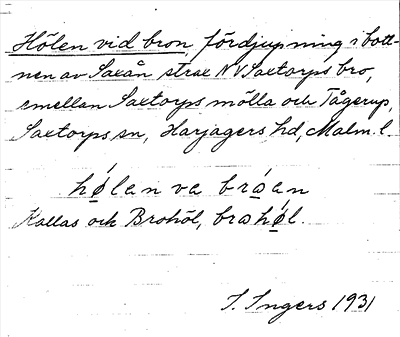 Hölen vid bron, fördjupning i bott-
nen av Saxån strax NV Saxtorps bro,
emellan Saxtorps mölla och Tågerup,
Saxtorps sn, Harjagers hd, Malm. l.
hølen va broen
Kallas ock Brohöl, brohøl.
I. Ingers 1931